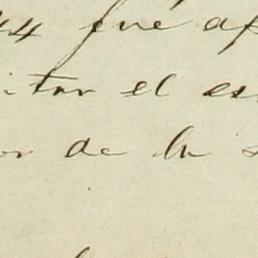 44 fue ap
itar el es
or de la s